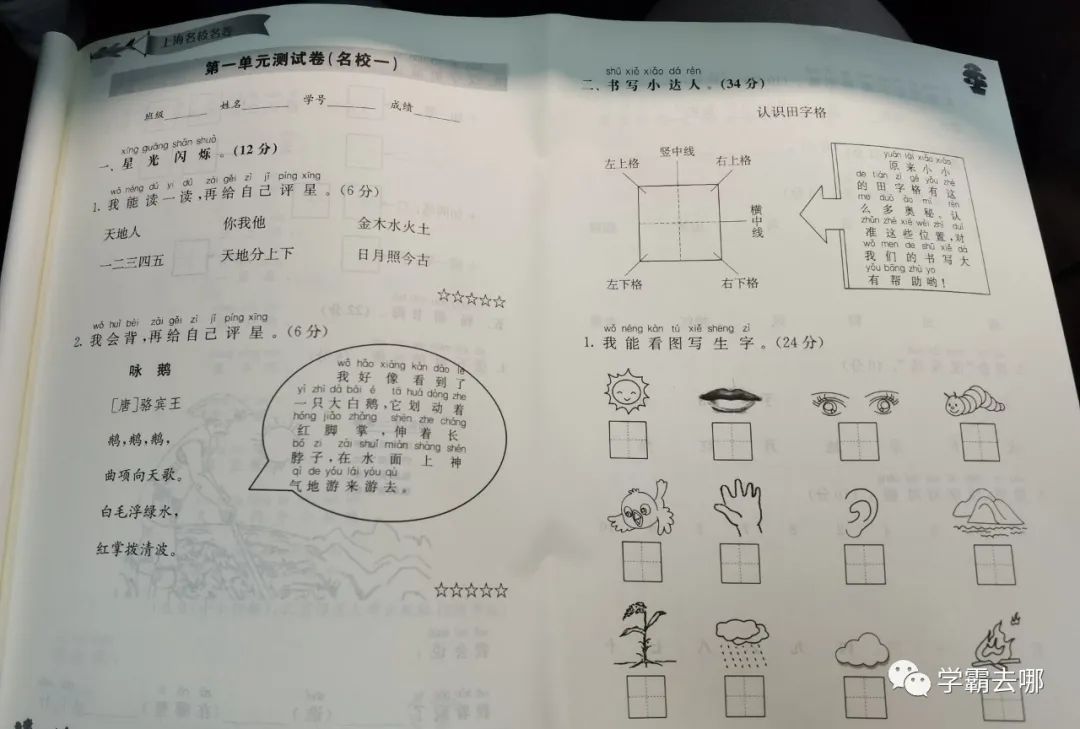 上海名校名卷
第一单元测试卷(名校一)
班级______ 姓名______ 学号______ 成绩______
xīng guāng shǎn shuò
一、星光闪烁。(12分)
wǒ néng dú yi dú zài gěi zì jǐ píng xīng
1. 我能读一读,再给自己评星。(6分)
天地人 你我他 金木水火土
一二三四五 天地分上下 日月照今古
☆☆☆☆☆
wǒ huì bèi zài gěi zì jǐ píng xīng
2. 我会背,再给自己评星。(6分)
咏 鹅
[唐]骆宾王
鹅,鹅,鹅,
曲项向天歌。
白毛浮绿水,
红掌拨清波。
wǒ hǎo xiàng kàn dào le
我好像看到了
yì zhī dà bái é tā huá dòng zhe
一只大白鹅,它划动着
hóng jiǎo zhǎng shēn zhe cháng
红脚掌,伸着长
bó zi zài shuǐ miàn shàng shén
脖子,在水面上神
qì de yóu lái yóu qù
气地游来游去。
☆☆☆☆☆
shū xiě xiǎo dá rén
二、书写小达人。(34分)
认识田字格
左上格 竖中线 右上格
横中线
左下格 右下格
yuán lái xiǎo xiǎo
原来小小
de tián zì gé yǒu zhè
的田字格有这
me duō ào mì rèn
么多奥秘。认
zhǔn zhè xiē wèi zhì duì
准这些位置,对
wǒ men de shū xiě dà
我们的书写大
yǒu bāng zhù yo
有帮助哟!
wǒ néng kàn tú xiě shēng zì
1. 我能看图写生字。(24分)
学霸去哪